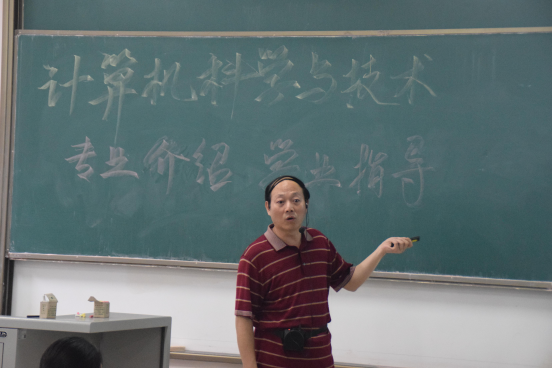 计算机科学与技术
专业介绍 学业指导